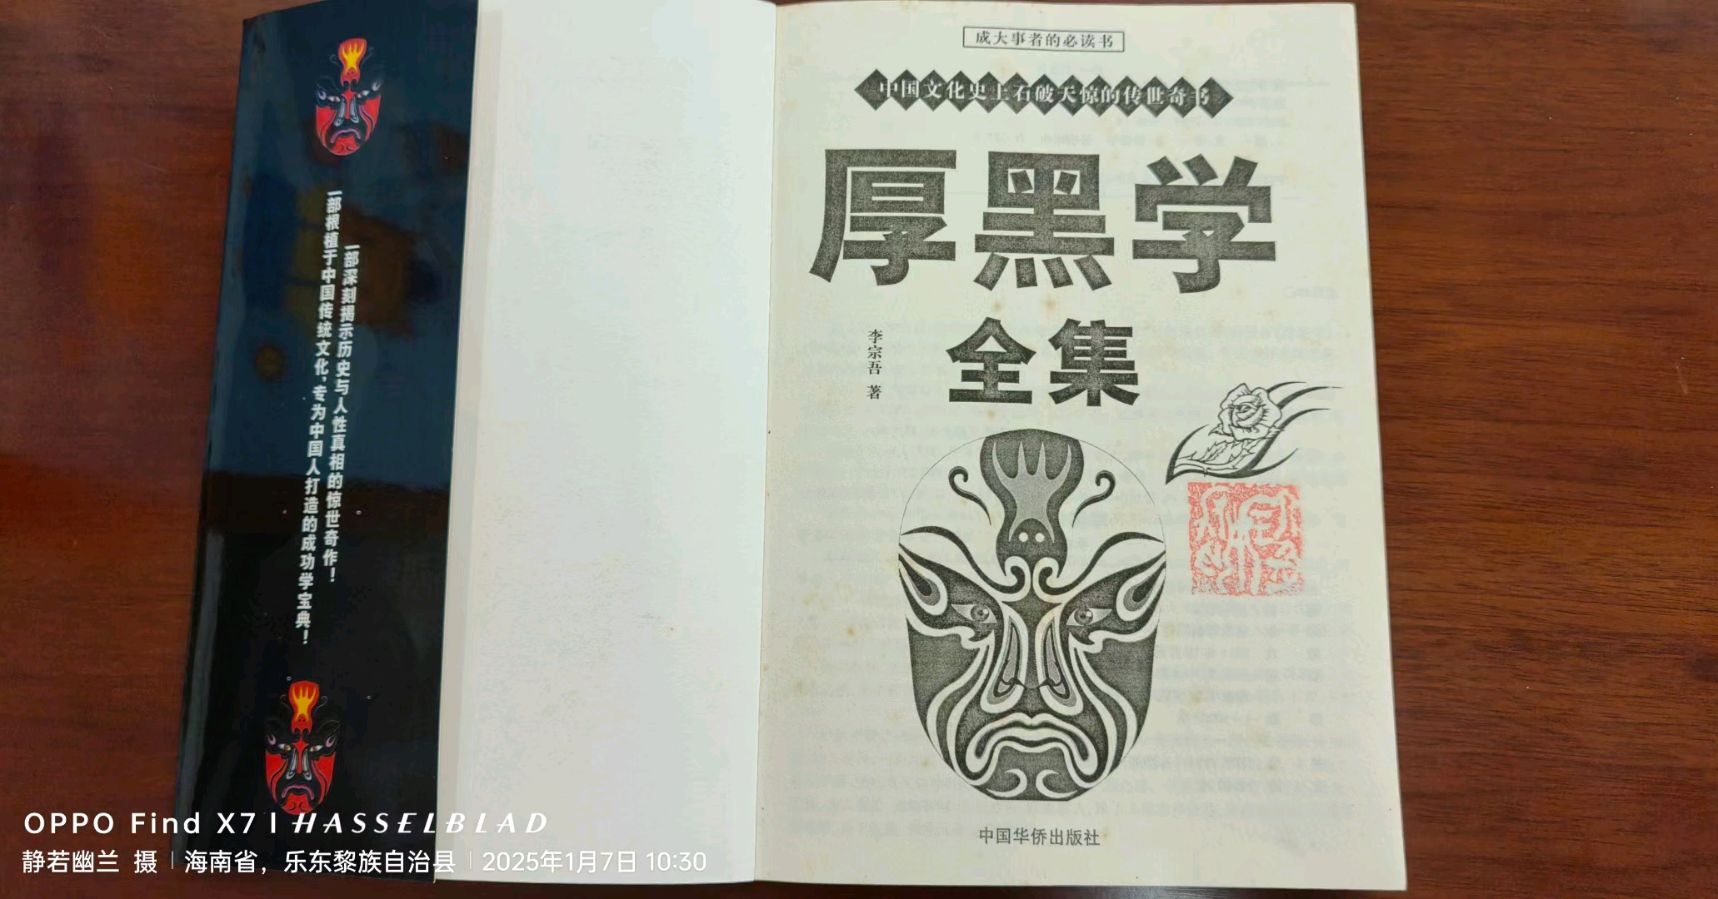 一部深刻揭示历史与人性真相的惊世奇作！
一部根植于中国传统文化，专为中国人打造的成功学宝典！
成大事者的必读书
中国文化史上石破天惊的传世奇书
厚黑学
全集
李宗吾 著
中国华侨出版社
OPPO Find X7 | HASSELBLAD
静若幽兰 摄 | 海南省，乐东黎族自治县 | 2025年1月7日 10:30